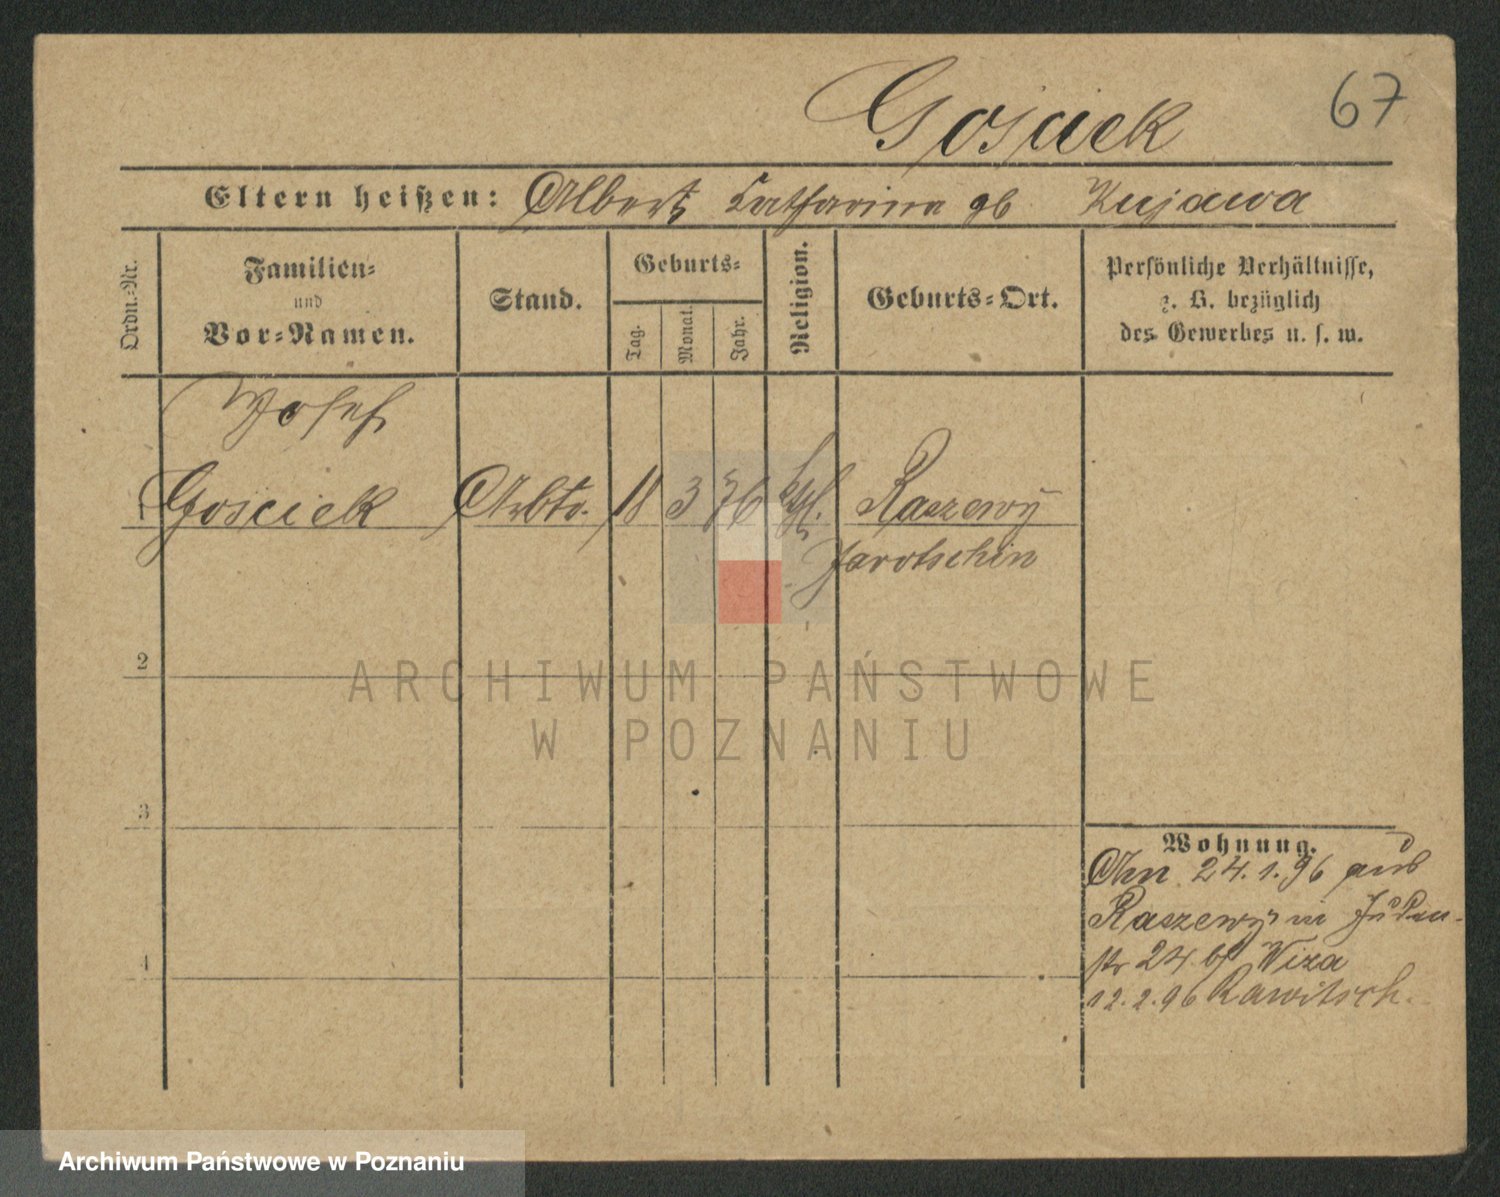 67
Gościek
Eltern heißen: Albert Catharina gb Kujawa
Ordn.-Nr.
Familien-
und
Vor-Namen.
Stand.
Geburts-
Tag.
Monat.
Jahr.
Religion.
Geburts-Ort.
Persönliche Verhältnisse,
z. B. bezüglich
des Gewerbes u. s. w.
Josef
1 Gościek Arbtr. 18 3 76 kth. Raszewy
Jarotschin
2
3
4
Wohnung.
Am 24.1.96 aus
Raszewy in Juden-
str 24 bf Wiza
12.2.96 Rawitsch.
ARCHIWUM PAŃSTWOWE
W POZNANIU
Archiwum Państwowe w Poznaniu